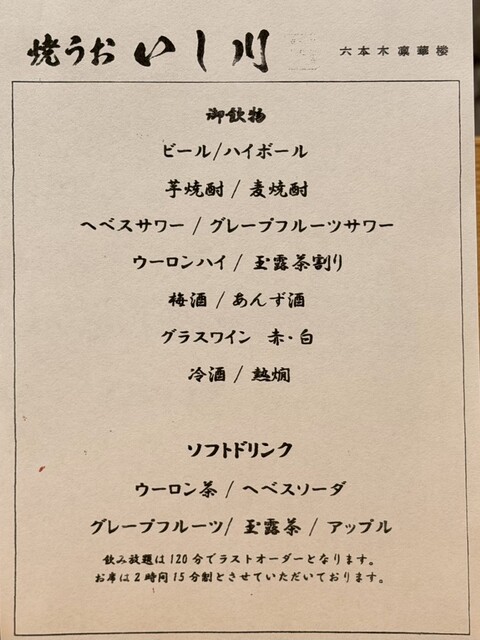 焼うお いし川
六本木凛華楼
御飲物
ビール/ハイボール
芋焼酎 / 麦焼酎
ヘベスサワー / グレープフルーツサワー
ウーロンハイ / 玉露茶割り
梅酒 / あんず酒
グラスワイン 赤・白
冷酒 / 熱燗
ソフトドリンク
ウーロン茶 / ヘベスソーダ
グレープフルーツ/ 玉露茶 / アップル
飲み放題は120分でラストオーダーとなります。
お席は2時間15分制とさせていただいております。